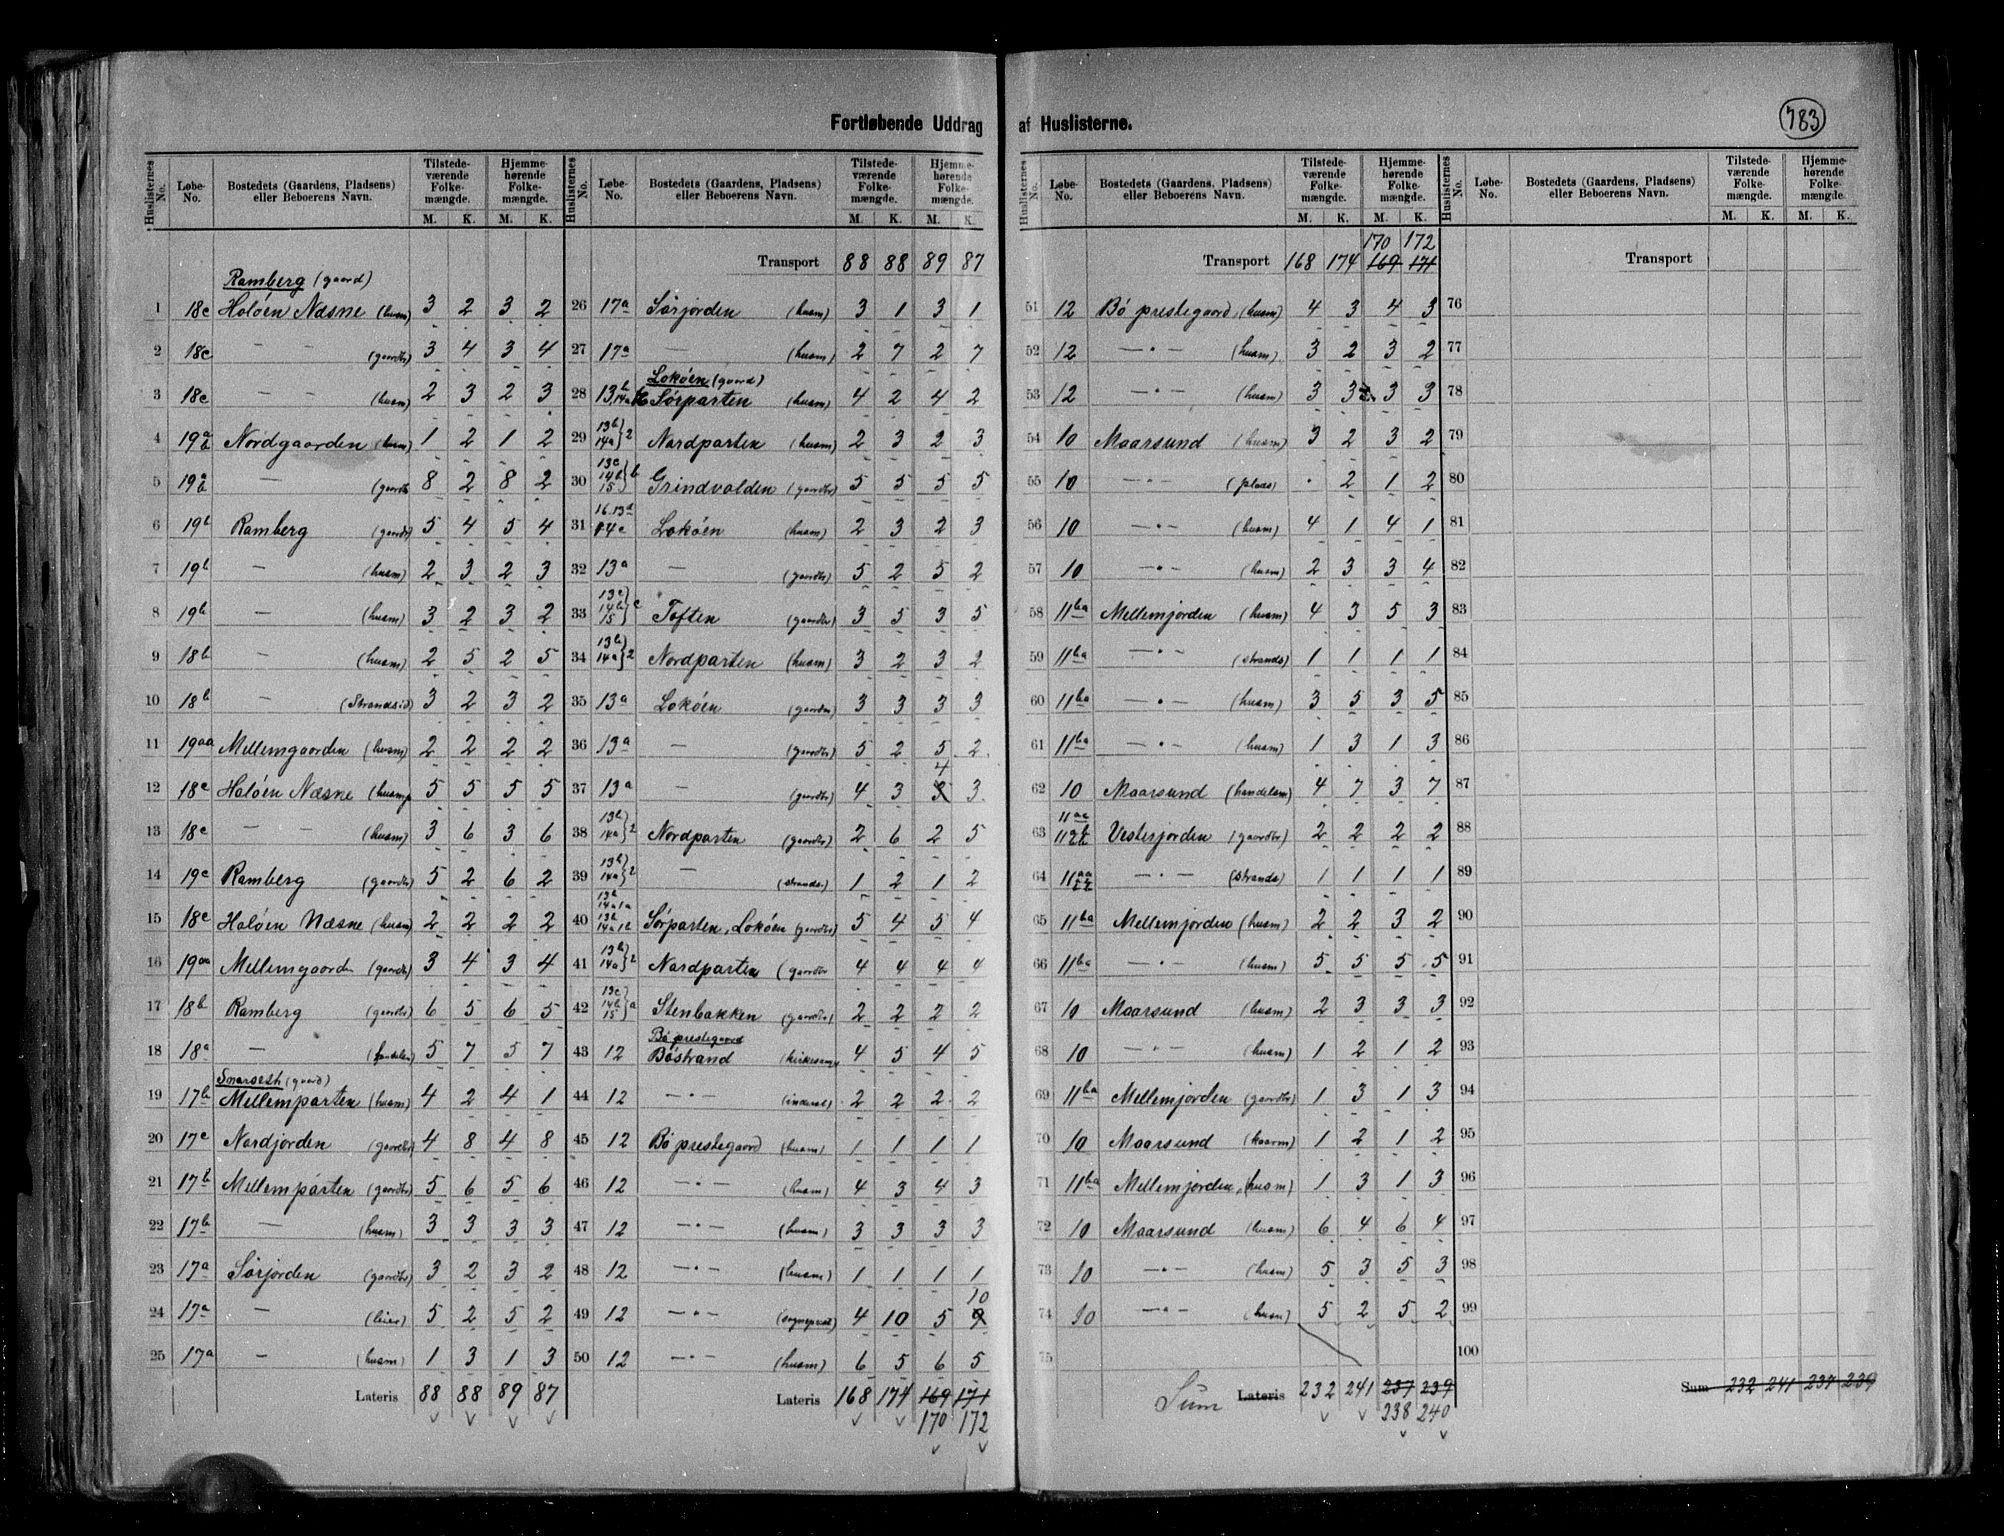 Fortløbende Uddrag af Huslisterne.
783
Huslisternes No. Løbe-No. Bostedets (Gaardens, Pladsens) eller Beboerens Navn. Tilstedeværende Folkemængde. M. K. Hjemmehørende Folkemængde. M. K.
Ramberg (gaard)
1 18c Holöen Næsne (husm) 3 2 3 2
2 18c — — (gaardbr) 3 4 3 4
3 18c — — (husm) 2 3 2 3
4 19a b Nordgaarden (husm) 1 2 1 2
5 19a b — (gaardb 8 2 8 2
6 19b Ramberg (gaardb) 5 4 5 4
7 19b — (husm) 2 3 2 3
8 19b — (husm) 3 2 3 2
9 18b — (husm) 2 5 2 5
10 18b — (Strandsid) 3 2 3 2
11 19aa Mellemgaarden (husm) 2 2 2 2
12 18c Holöen Næsne (husmp 5 5 5 5
13 18c — — (husm) 3 6 3 6
14 19c Ramberg (gaardbr) 5 2 6 2
15 18c Holöen Næsne (husm) 2 2 2 2
16 19aa Mellemgaarden (gaardb) 3 4 3 4
17 18b Ramberg (gaardbr) 6 5 6 5
18 18a — (handelsm) 5 7 5 7
Snarseth (gaard)
19 17b Mellemparten (husm) 4 2 4 1
20 17c Nordjorden (gaardbr) 4 8 4 8
21 17b Mellemparten (gaardbr) 5 6 5 6
22 17b — (husm) 3 3 3 3
23 17a Sörjorden (gaardbr) 3 2 3 2
24 17a — (leier) 5 2 5 2
25 17a — (husm) 1 3 1 3
Lateris 88 88 89 87
Huslisternes No. Løbe-No. Bostedets (Gaardens, Pladsens) eller Beboerens Navn. Tilstedeværende Folkemængde. M. K. Hjemmehørende Folkemængde. M. K.
Transport 88 88 89 87
26 17a Sörjorden (husm) 3 1 3 1
27 17a — (husm) 2 7 2 7
Loköen (gaard)
28 13b,14a Sörparten (husm) 4 2 4 2
29 13b 14a}2 Nordparten (husm) 2 3 2 3
30 13c 14b 15}b Grindvolden (gaardbr) 5 5 5 5
31 16.13d 14c Loköen (husm) 2 3 2 3
32 13a — (gaardbr) 5 2 5 2
33 13c 14b 15}c Toften (gaardbr) 3 5 3 5
34 13b 14a}2 Nordparten (husm) 3 2 3 2
35 13a Loköen (gaardm) 3 3 3 3
36 13a — (gaardbr) 5 2 5 2
37 13a — (gaardbr) 4 3 3 4 3
38 13b 14a}2 Nordparten (gaardbr) 2 6 2 5
39 13b 14a}2 — (strands.) 1 2 1 2
40 13b 14a1a 13b 14a1b Sörparten, Loköen (gaardbr) 5 4 5 4
41 13b 14a}2 Nordparten (gaardbr 4 4 4 4
42 13c 14b 15}a Stenbakken (gaardbr) 2 2 2 2
Bö prestegaard
43 12 Böstrand (kirkesang 4 5 4 5
44 12 —"— (inderst) 2 2 2 2
45 12 Bö prestegaard (husm) 1 1 1 1
46 12 —"— (husm) 4 3 4 3
47 12 —"— (husm) 3 3 3 3
48 12 —"— (husm) 1 1 1 1
49 12 —"— (sognepræst) 4 10 5 9 10
50 12 —"— (husm) 6 5 6 5
Lateris 168 174 169 171
170 172
Huslisternes No. Løbe-No. Bostedets (Gaardens, Pladsens) eller Beboerens Navn. Tilstedeværende Folkemængde. M. K. Hjemmehørende Folkemængde. M. K.
170 172
Transport 168 174 169 171
51 12 Bö prestegaard, (husm) 4 3 4 3
52 12 —"— (husm) 3 2 3 2
53 12 —"— (husm) 3 3 3 3
54 10 Maarsund (husm) 3 2 3 2
55 10 —"— (plads) · 2 1 2
56 10 —"— (husm) 4 1 4 1
57 10 —"— (husm) 2 3 3 4
58 11ba Mellemjorden (husm) 4 3 5 3
59 11ba —"— (strands) 1 1 1 1
60 11ba —"— (husm) 3 5 3 5
61 11ba —"— (husm) 1 3 1 3
62 10 Maarsund (handelsm) 4 7 3 7
63 11ac Vestsjorden (gaardbr) 2 2 2 2
64 11aa —"— (strands) 1 1 1 1
65 11ba Mellemjorden (husm) 2 2 3 2
66 11ba —"— (husm) 5 5 5 5
67 10 Maarsund (husm) 2 3 3 3
68 10 —"— (husm) 1 2 1 2
69 11ba Mellemjorden (gaardbr) 1 3 1 3
70 10 Maarsund (kaarm) 1 2 1 2
71 11ba Mellemjorden, (husm) 1 3 1 3
72 10 Maarsund (husm) 6 4 6 4
73 10 —"— (husm) 5 3 5 3
74 10 —"— (husm) 5 2 5 2
75
Sum Lateris 232 241 237 239
238 240
Huslisternes No. Løbe-No. Bostedets (Gaardens, Pladsens) eller Beboerens Navn. Tilstedeværende Folkemængde. M. K. Hjemmehørende Folkemængde. M. K.
Transport
76
77
78
79
80
81
82
83
84
85
86
87
88
89
90
91
92
93
94
95
96
97
98
99
100
Sum 232 241 237 239